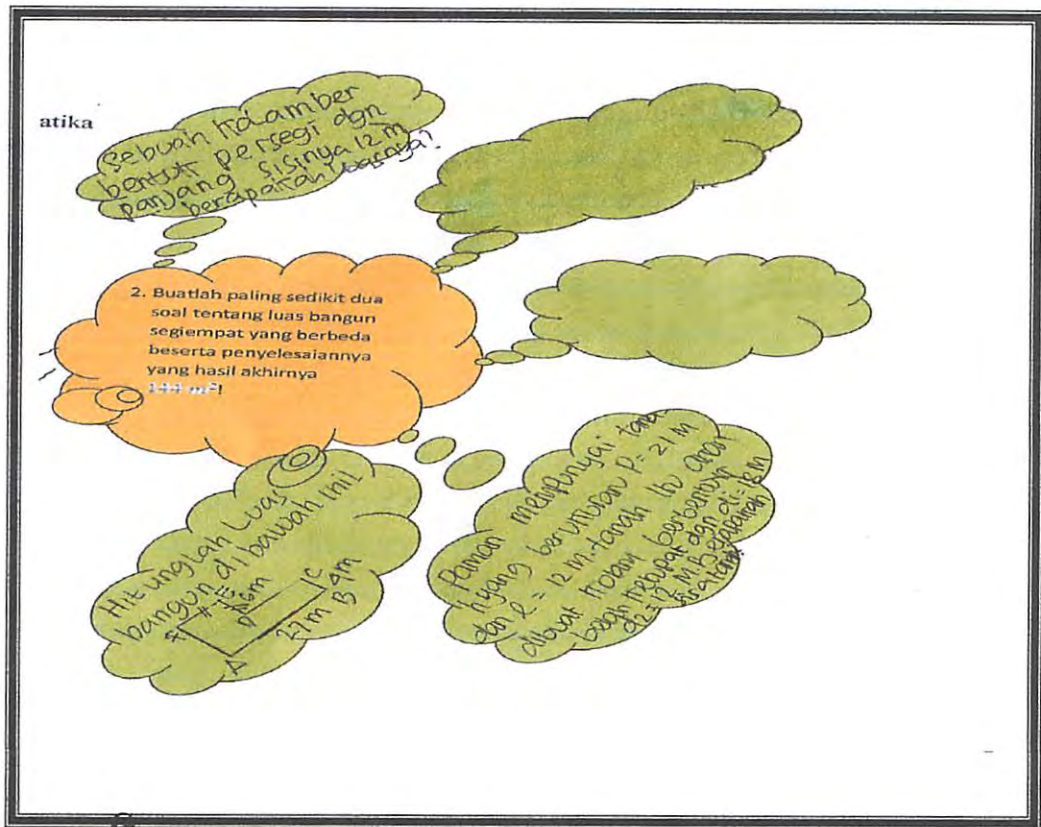 atika
Sebuah kolamber
bentuk persegi dgn
panjang sisinya 12 m
berapakah luasnya?
2. Buatlah paling sedikit dua
soal tentang luas bangun
segiempat yang berbeda
beserta penyelesaiannya
yang hasil akhirnya
144 m²!
Hitunglah Luas
bangun dibawah ini!
F E
6m
D C
4m
27m B
A
Paman mempunyai tana
h yang berukuran p = 21 M
dan l = 12 M. tanah itu akan
dibuat kolam berbentuk
belah ketupat dgn d1 = 18 M
d2 = 12 M. Berapakah